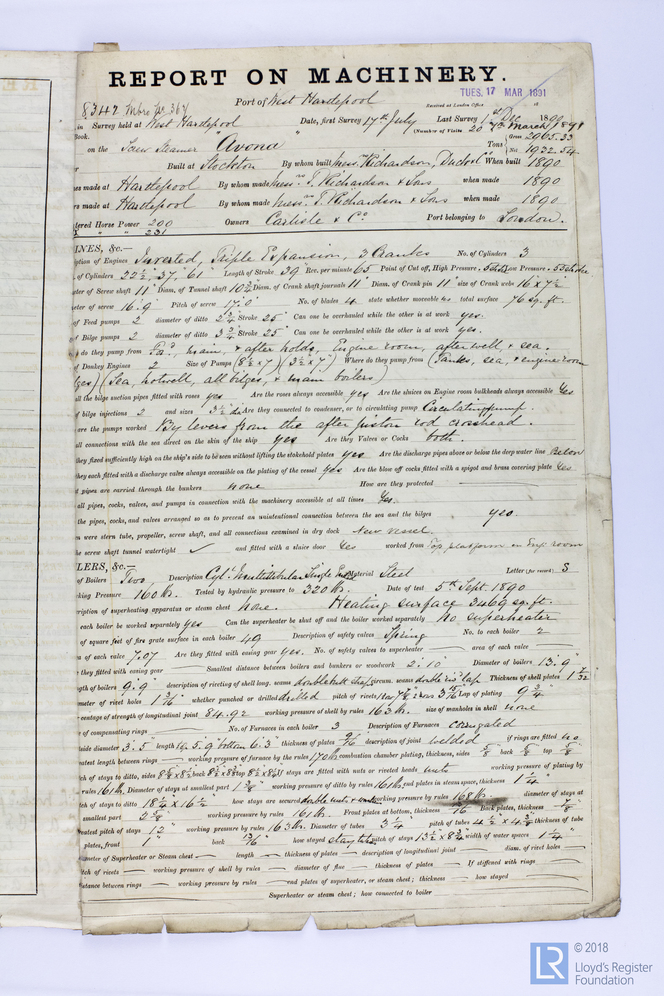 REPORT ON MACHINERY.
TUES. 17 MAR 1891
8347
Port of West Hartlepool
Received at London Office
in Survey held at West Hartlepool Date, first Survey 17th July Last Survey 1st Dec 1890
Book. (Number of Visits 20 7th March 1891
on the Screw Steamer "Avona" Tons Gross 2065.33
Net 1932.54
Built at Stockton By whom built Messrs Richardson, Duck & Co When built 1890
es made at Hartlepool By whom made Messrs T. Richardson & Sons when made 1890
rs made at Hartlepool By whom made Messrs T. Richardson & Sons when made 1890
tered Horse Power 200 Owners Carlisle & Co. Port belonging to London.
231
INES, &c.—
ption of Engines Inverted, Triple Expansion, 3 Cranks No. of Cylinders 3
of Cylinders 22½" 37" 61" Length of Stroke 39 Rev. per minute 65 Point of Cut off, High Pressure, Low Pressure
ter of Screw shaft 11" Diam. of Tunnel shaft 10½ Diam. of Crank shaft journals 11" Diam. of Crank pin 11" size of Crank webs 16 x 7½
eter of screw 16.9 Pitch of screw 17.0 No. of blades 4 state whether moveable no total surface 76 sq. ft.
of Feed pumps 2 diameter of ditto 2¾ Stroke 25" Can one be overhauled while the other is at work yes.
of Bilge pumps 2 diameter of ditto 3¾ Stroke 25" Can one be overhauled while the other is at work yes.
e do they pump from For., main, & after holds, Engine room, after well & sea.
of Donkey Engines 2 Size of Pumps (8½ x 7) (3½ x 7) Where do they pump from (Tanks, sea, & engine room
lges) (Sea, hotwell, all bilges, & main boilers)
all the bilge suction pipes fitted with roses yes Are the roses always accessible yes Are the sluices on Engine room bulkheads always accessible Yes
of bilge injections 2 and sizes 3½ dia Are they connected to condenser, or to circulating pump Circulating pump.
are the pumps worked By levers from the after piston rod crosshead.
all connections with the sea direct on the skin of the ship yes Are they Valves or Cocks both.
they fixed sufficiently high on the ship's side to be seen without lifting the stokehold plates yes Are the discharge pipes above or below the deep water line Below
they each fitted with a discharge valve always accessible on the plating of the vessel yes Are the blow off cocks fitted with a spigot and brass covering plate Yes
t pipes are carried through the bunkers none How are they protected —
all pipes, cocks, valves, and pumps in connection with the machinery accessible at all times Yes.
the pipes, cocks, and valves arranged so as to prevent an unintentional connection between the sea and the bilges yes.
n were stern tube, propeller, screw shaft, and all connections examined in dry dock New vessel.
he screw shaft tunnel watertight ✓ and fitted with a sluice door Yes worked from Top platform in Eng. room
LERS, &c.—
of Boilers Two, Description Cyl. Multitubular Single End Material Steel Letter (for record) S
king Pressure 160 lbs. Tested by hydraulic pressure to 320 lbs. Date of test 5th Sept. 1890
ription of superheating apparatus or steam chest none. Heating surface 3469 sq. ft.
each boiler be worked separately yes Can the superheater be shut off and the boiler worked separately no superheater
of square feet of fire grate surface in each boiler 49 Description of safety valves Spring No. to each boiler 2
of each valve 7.07 Are they fitted with easing gear yes. No. of safety valves to superheater — area of each valve —
they fitted with easing gear — Smallest distance between boilers and bunkers or woodwork 2.10" Diameter of boilers 13.9"
gth of boilers 9.9" description of riveting of shell long. seams double butt straps circum. seams double riv. lap Thickness of shell plates 1 7/32
meter of rivet holes 1 3/16" whether punched or drilled drilled pitch of rivets 3 5/16" Lap of plating 9¾"
centage of strength of longitudinal joint 84.92 working pressure of shell by rules 163 lbs. size of manholes in shell none
of compensating rings — No. of Furnaces in each boiler 3 Description of Furnaces corrugated
side diameter 3.5 length top 5.9" bottom 6.3" thickness of plates 9/16" description of joint welded if rings are fitted no
eatest length between rings — working pressure of furnace by the rules 170 lbs. combustion chamber plating, thickness, sides 5/8" back 5/8" top 5/8"
ch of stays to ditto, sides 8½ x 8½ back 8½ x 8½ top 8½ x 8½ If stays are fitted with nuts or riveted heads nuts working pressure of plating by
rules 161 lbs. Diameter of stays at smallest part 1⅜" working pressure of ditto by rules 161 lbs. end plates in steam space, thickness 1¼"
ch of stays to ditto 18¼ x 16½ how stays are secured double nuts & working pressure by rules 168 lbs. diameter of stays at
smallest part 2⅝" working pressure by rules 161 lbs. Front plates at bottom, thickness 13/16" Back plates, thickness 7/8"
eatest pitch of stays 12" working pressure by rules 163 lbs. Diameter of tubes 3¼" pitch of tubes 4½" x 4⅜ thickness of tube
plates, front 1" back 13/16" how stayed stay tubes pitch of stays 13½ x 8¾ width of water spaces 1¼"
ameter of Superheater or Steam chest — length — thickness of plates — description of longitudinal joint — diam. of rivet holes —
tch of rivets — working pressure of shell by rules — diameter of flue — thickness of plates — If stiffened with rings
istance between rings — working pressure by rules — end plates of superheater, or steam chest; thickness — how stayed
Superheater or steam chest; how connected to boiler
LR
© 2018
Lloyd's Register
Foundation